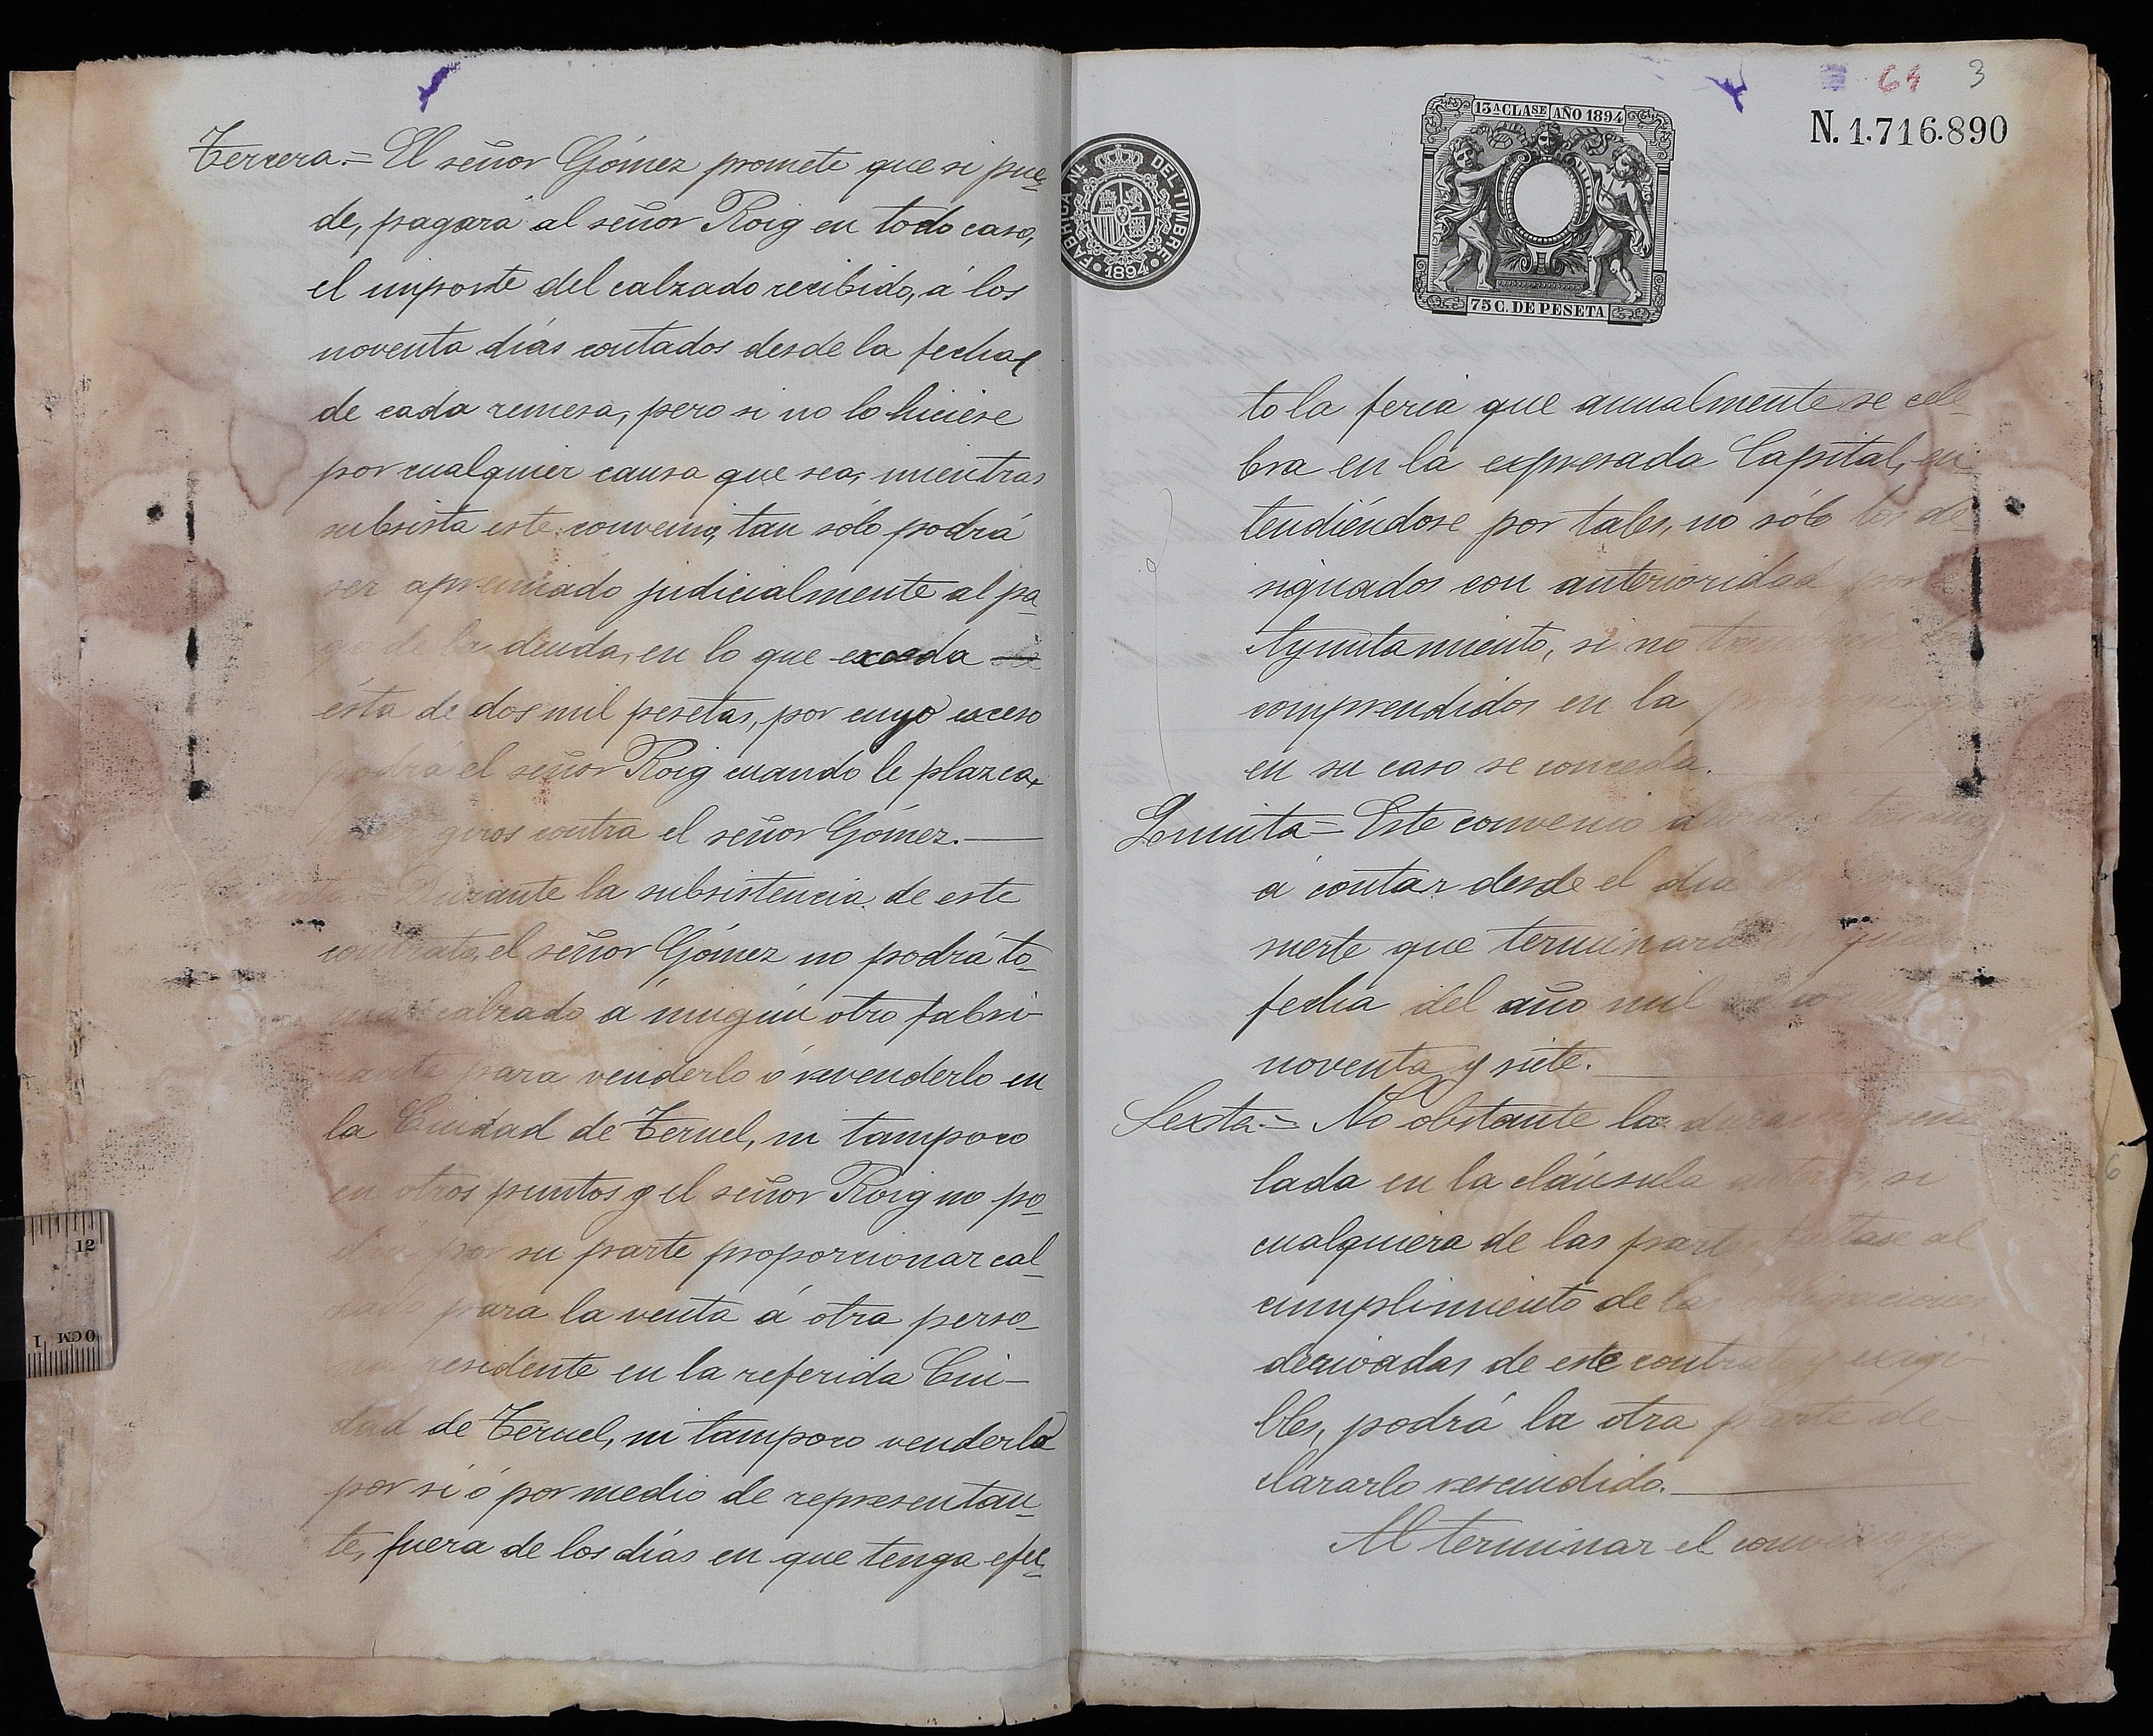 Tercera.= El señor Gómez promete que si pue-
de, pagará al señor Roig en todo caso,
el importe del calzado recibido, á los
noventa días contados desde la fecha
de cada remesa, pero si no lo hiciese
por cualquier causa que sea, mientras
subsista este convenio, tan sólo podrá
ser apremiado judicialmente al pa-
go de la deuda, en lo que exceda
ésta de dos mil pesetas, por cuyo exceso
podrá el señor Roig cuando le plazca,
giros contra el señor Gómez.—
Durante la subsistencia de este
contrato, el señor Gómez no podrá to-
mar calzado á ningún otro fabri-
cante para venderlo ó revenderlo en
la Ciudad de Teruel, ni tampoco
en otros puntos y el señor Roig no po-
drá por su parte proporcionar cal-
zado para la venta á otra perso-
na residente en la referida Ciu-
dad de Teruel, ni tampoco venderlo
por sí ó por medio de representan-
te, fuera de los días en que tenga efec-
64 3
FABRICA NAL DEL TIMBRE
1894
13A CLASE AÑO 1894
75 C. DE PESETA
N. 1.716.890
to la feria que anualmente se cele-
bra en la expresada Capital, en-
tendiéndose por tales, no sólo los de-
signados con anterioridad por
Ayuntamiento, si no
comprendidos en la
en su caso se conceda.
Quinta= Este convenio
á contar desde el día
suerte que terminará
fecha del año mil
noventa y siete.
Sexta.= No obstante la duración seña-
lada en la cláusula si
cualquiera de las partes faltase al
cumplimiento de las obligaciones
derivadas de este contrato exigi-
bles, podrá la otra parte de-
clararlo rescindido.
Al terminar el
12
1 0CM
6